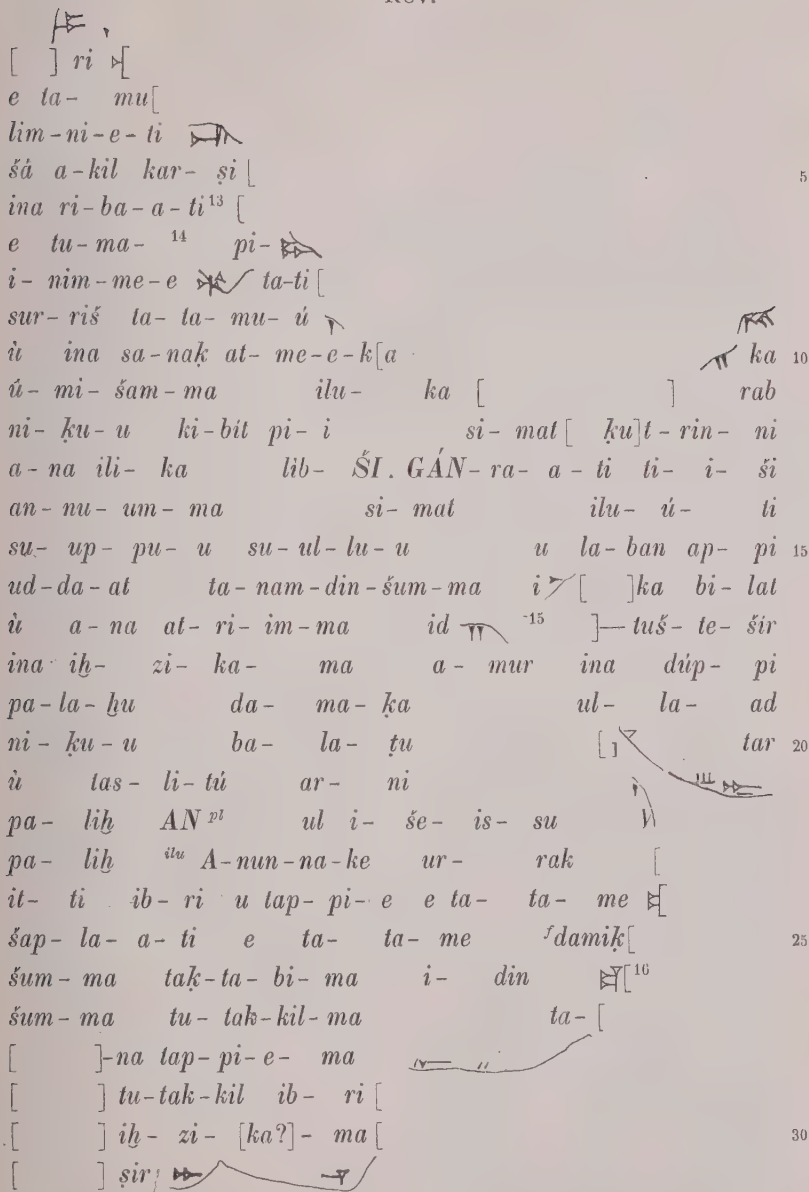 Rev.
[ ] ri [
e ta- mu[
lim-ni-e-ti
šá a-kil kar-ṣi [ 5
ina ri-ba-a-ti¹³ [
e tu-ma- ¹⁴ pi-
i-nim-me-e ta-ti [
sur-riš ta-ta-mu-ú
ù ina sa-naḳ at-me-e-k[a ka 10
ú-mi-šam-ma ilu-ka [ ] rab
ni-ḳu-u ki-bít pi-i si-mat [ ḳu]t-rin-ni
a-na ili-ka lib-ŠI.GÁN-ra-a-ti ti-i-ši
an-nu-um-ma si-mat ilu-ú-ti
su-up-pu-u su-ul-lu-u u la-ban ap-pi 15
ud-da-at ta-nam-din-šum-ma i [ ]ka bi-lat
ù a-na at-ri-im-ma id ¹⁵ ]—tuš-te-šir
ina iḫ-zi-ka-ma a-mur ina dúp-pi
pa-la-ḫu da-ma-ḳa ul-la-ad
ni-ḳu-u ba-la-ṭu [ ] tar 20
ù tas-li-tú ar-ni
pa-liḫ AN ᵖˡ ul i-še-is-su
pa-liḫ ⁱˡᵘ A-nun-na-ke ur-rak [
it-ti ib-ri u tap-pi-e e ta-ta-me [
šap-la-a-ti e ta-ta-me ᶠdamiḳ[ 25
šum-ma taḳ-ta-bi-ma i-din [¹⁶
šum-ma tu-tak-kil-ma ta-[
[ ]-na tap-pi-e-ma
[ ] tu-tak-kil ib-ri [
[ ] iḫ-zi-[ka?]-ma [ 30
[ ] ṣir